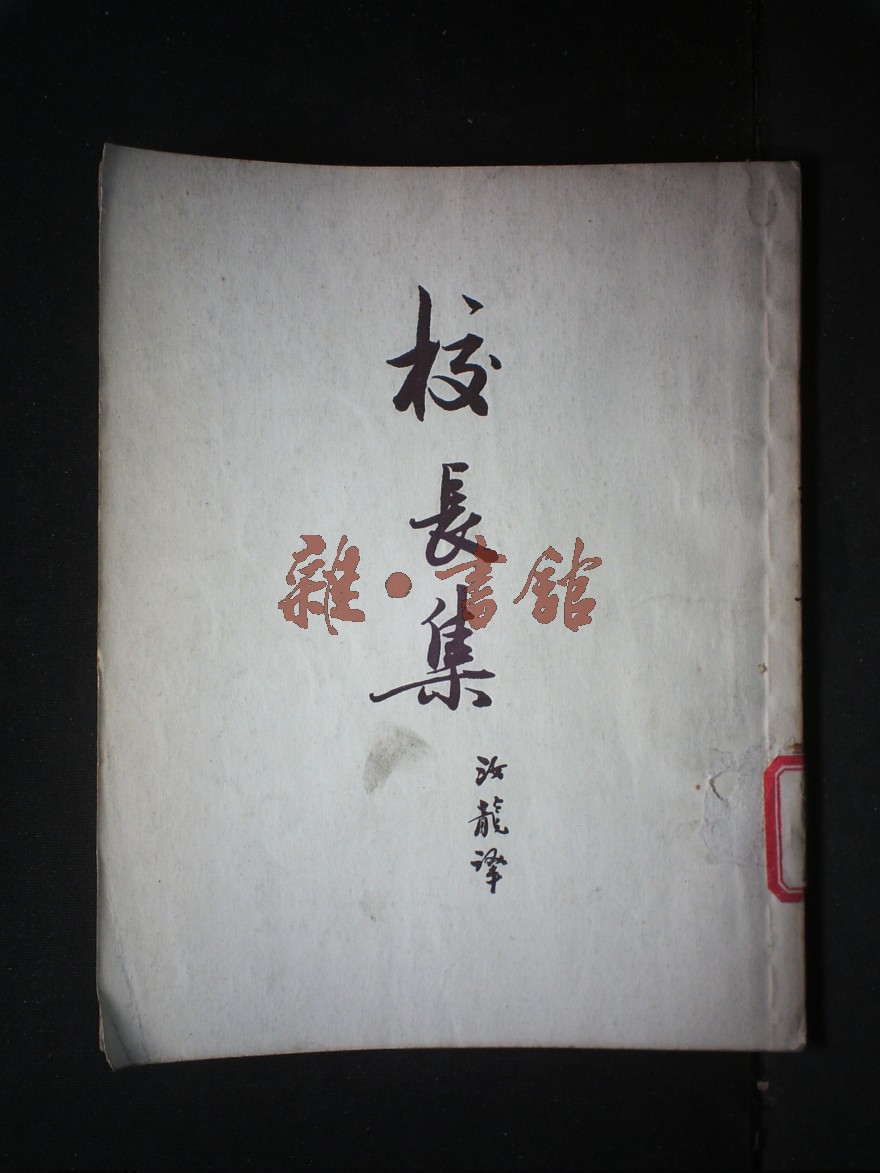 校長集
雜·書館
汝龍譯